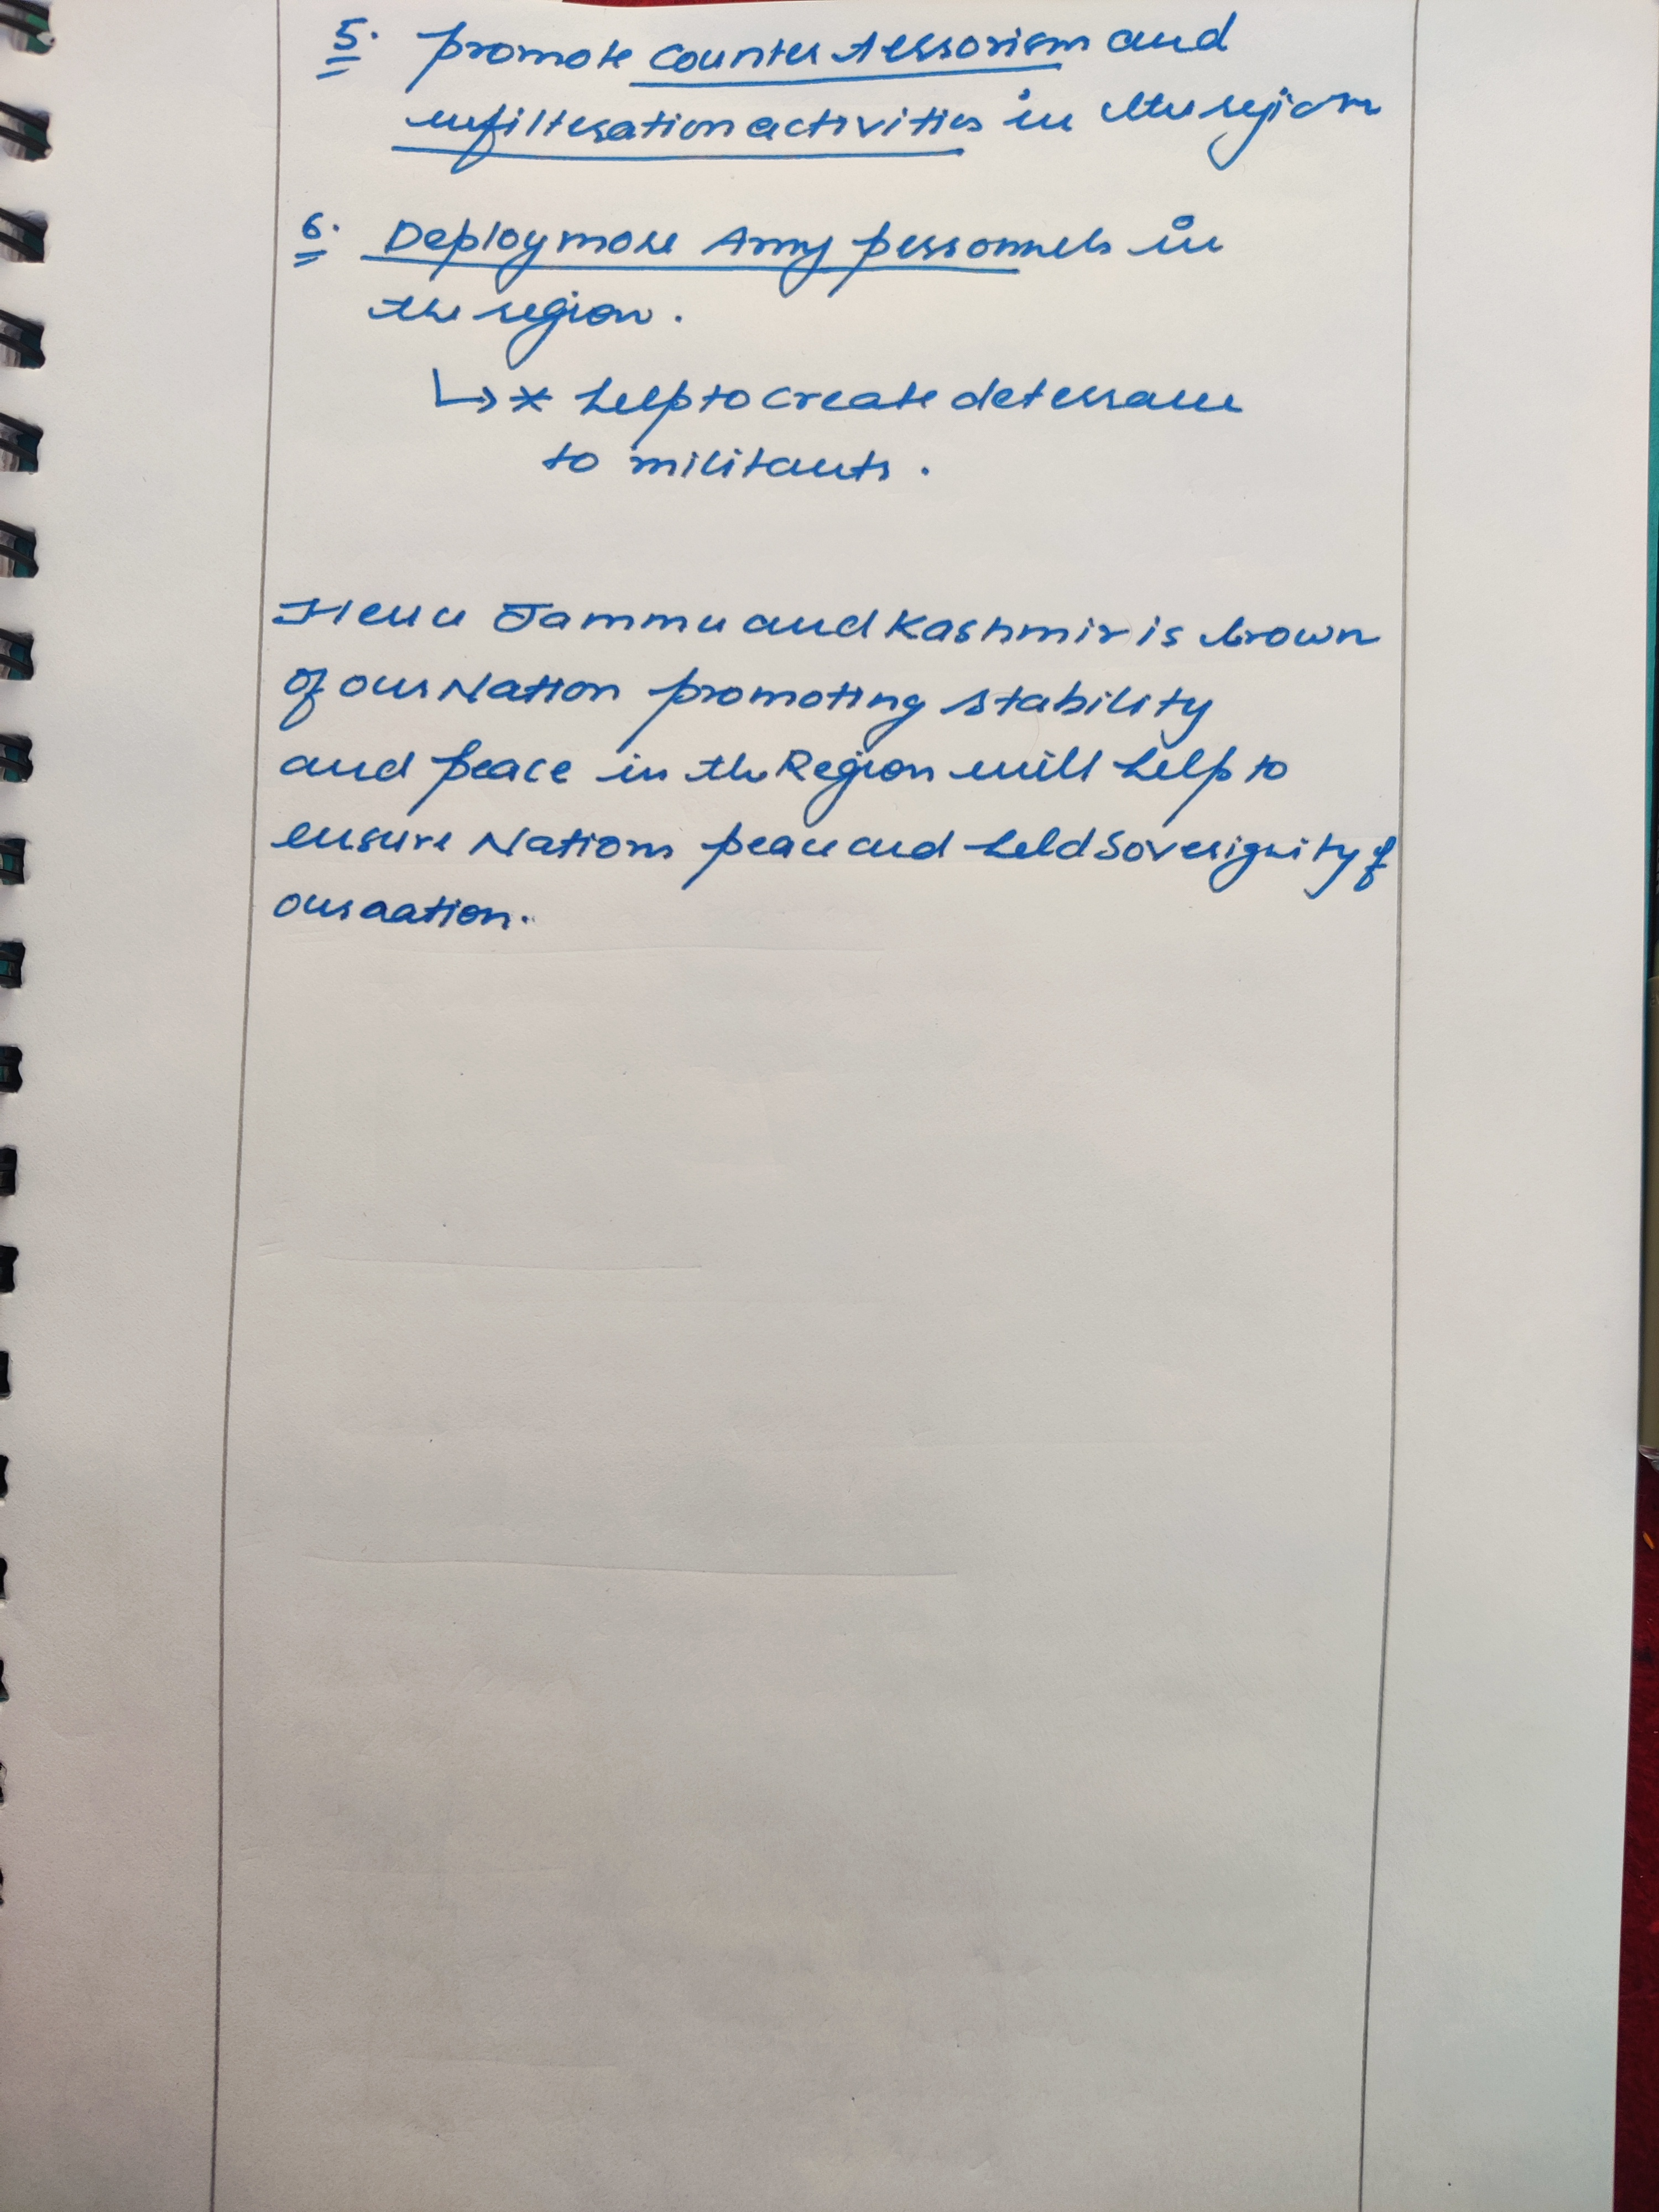 5. promote counter terrorism and
infilteration activities in the region
6. Deploy more Army personnels in
the region.
↳ * help to create deterrance
to militants.
Hence Jammu and Kashmir is crown
of our Nation promoting stability
and peace in the Region will help to
ensure Nations peace and held Soverignity of
our nation.